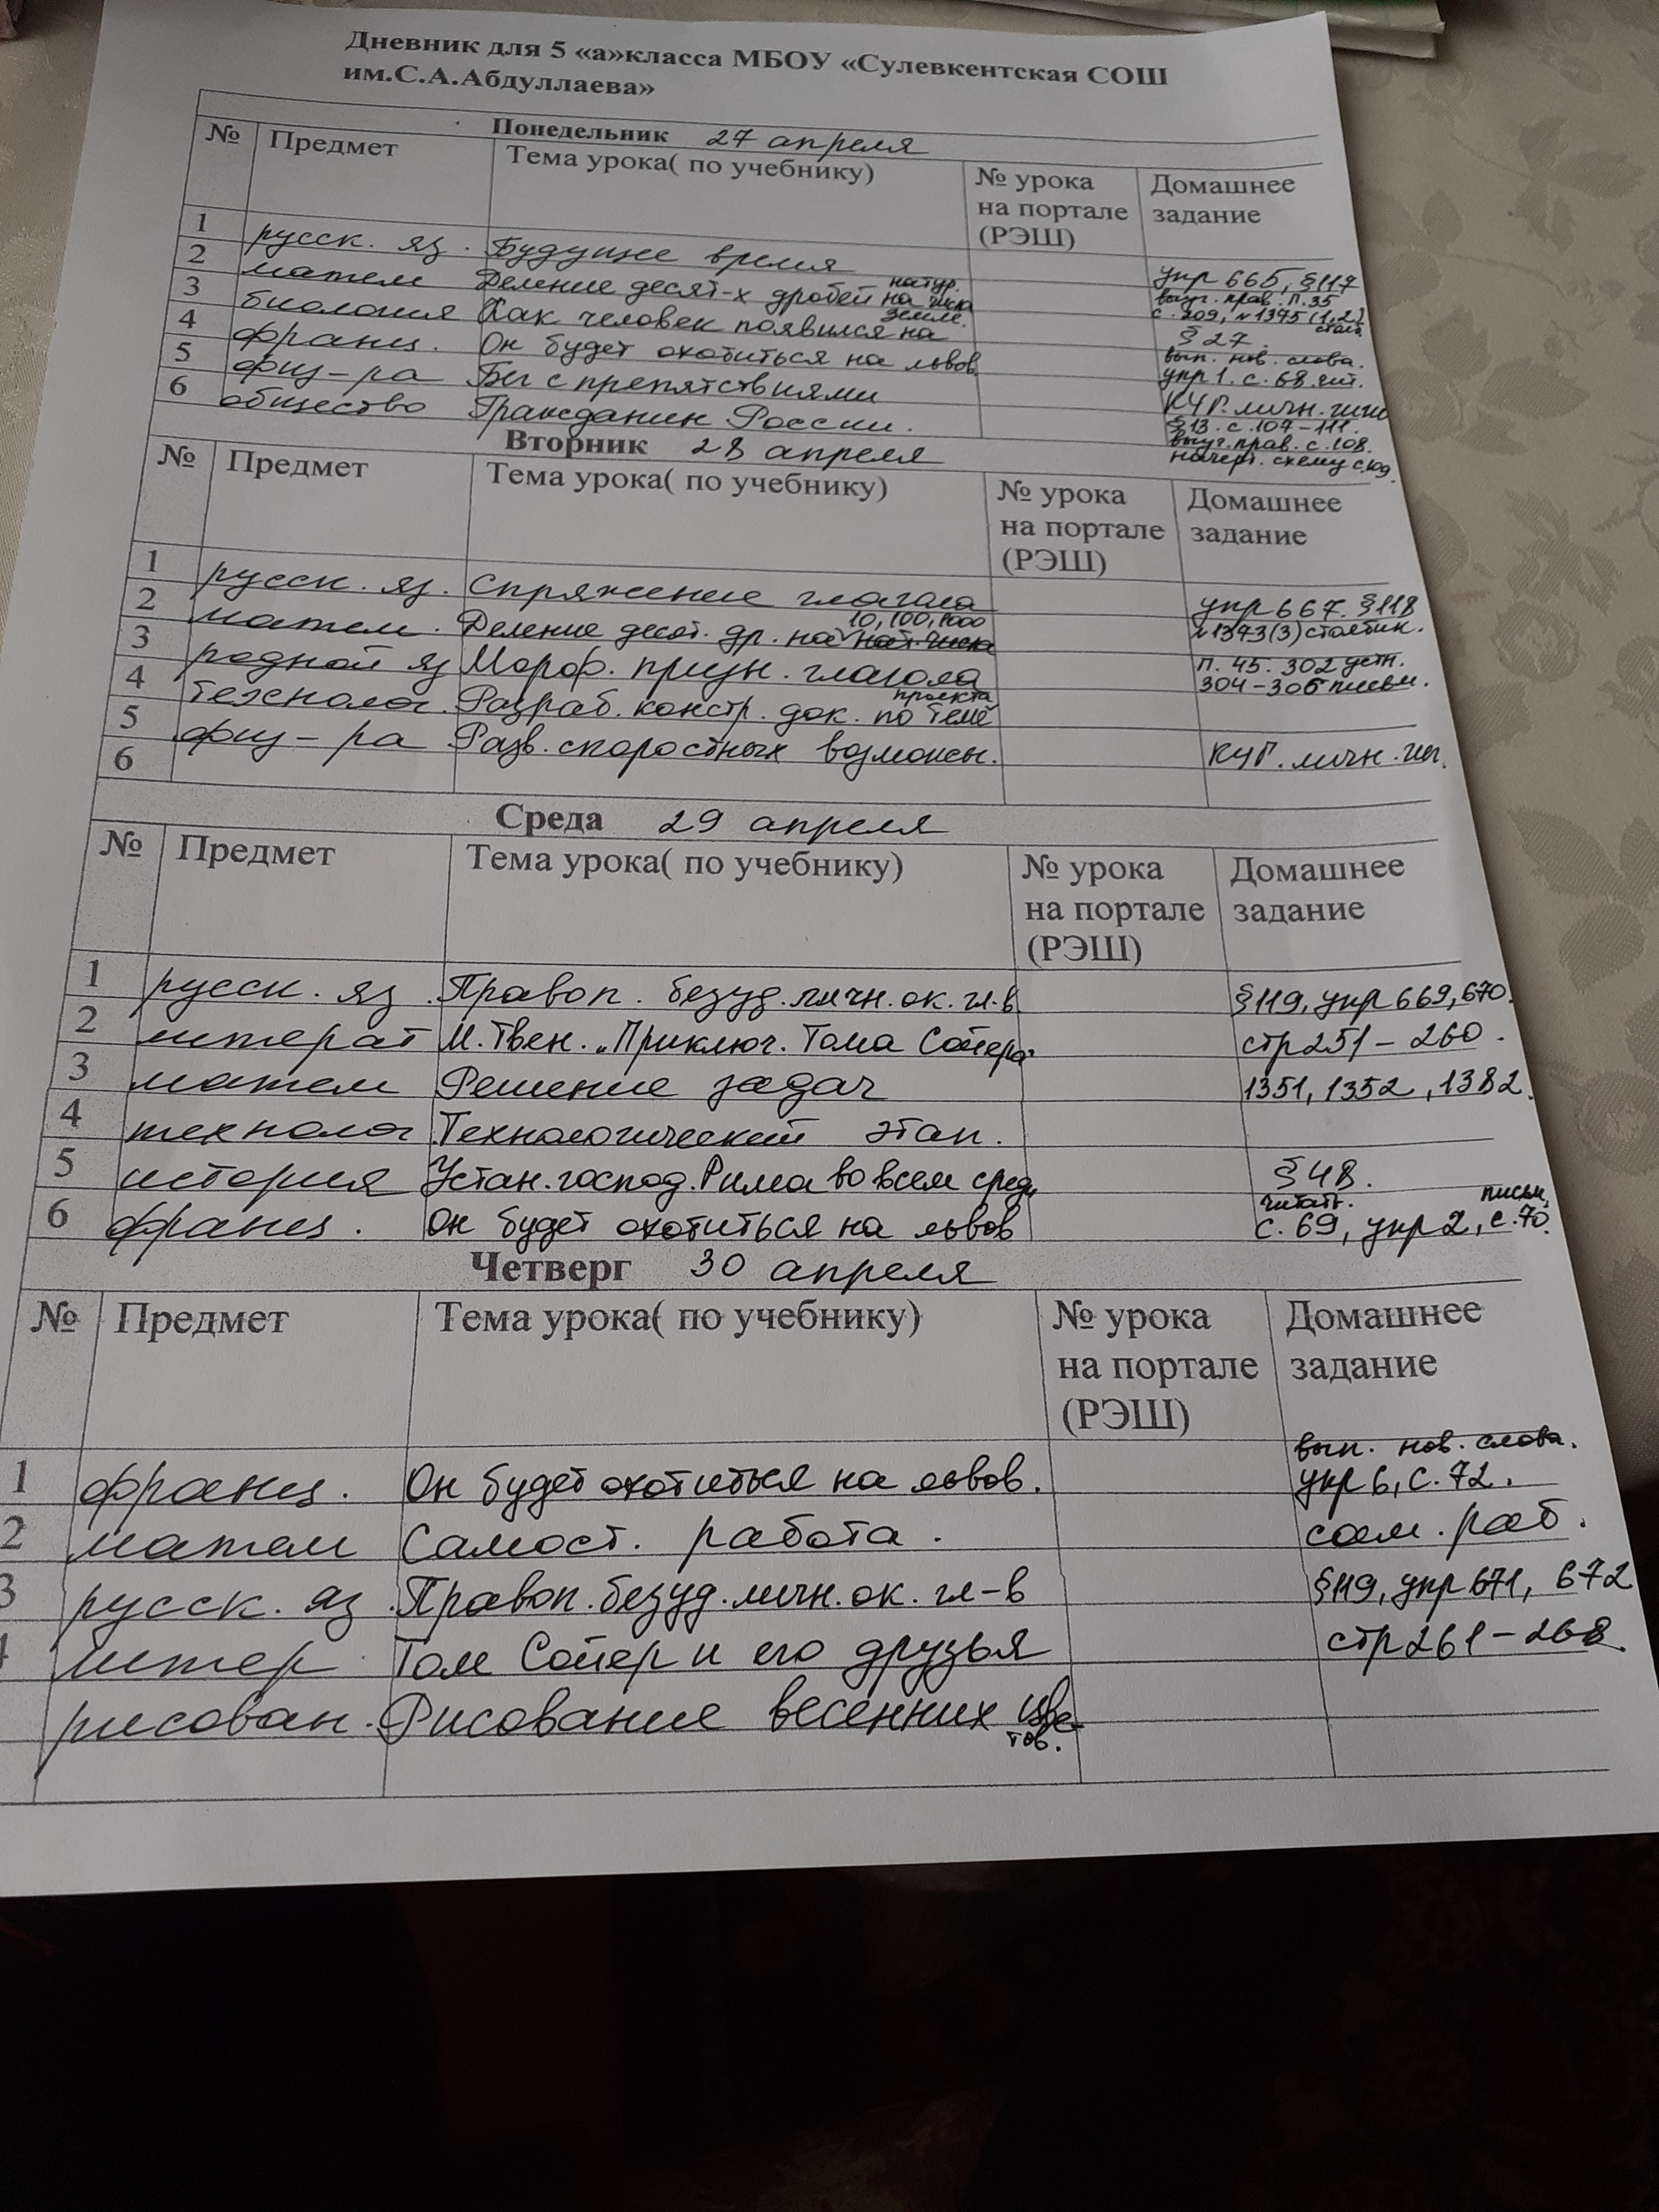 Дневник для 5 «а»класса МБОУ «Сулевкентская СОШ
им.С.А.Абдуллаева»
Понедельник 27 апреля
№ Предмет Тема урока( по учебнику) № урока на портале (РЭШ) Домашнее задание
1 русск. яз. Будущее время упр 665, §117
2 матем Деление десят-х дробей на натур. числа выуч. прав. п.35 с. 209, №1375 (1,2) столб
3 биология Как человек появился на земле. § 27.
4 франц. Он будет охотиться на львов. вып. нов. слова. упр 1. с. 68.
5 физ-ра Бег с препятствиями КЧГ. личн. гиг
6 общество Гражданин России. §13. с. 107-111. выуч. прав. с. 108. начерт. схему с.109.
Вторник 28 апреля
№ Предмет Тема урока( по учебнику) № урока на портале (РЭШ) Домашнее задание
1 русск. яз. Спряжение глагола упр 667. §118
2 матем. Деление десят. др. на 10,100,1000 нат. числа №1373(3) столбик.
3 родной яз Морф. призн. глагола п. 45. 302 устн. 304-305 письм.
4 технолог. Разраб. констр. док. по теме проекта
5 физ-ра Разв. скоростных возможн. КЧГ. личн. гиг.
6
Среда 29 апреля
№ Предмет Тема урока( по учебнику) № урока на портале (РЭШ) Домашнее задание
1 русск. яз. Правоп. безуд. личн. ок. гл-в §119, упр 669, 670.
2 литерат М. Твен. „Приключ. Тома Сойера" стр 251-260.
3 матем Решение задач 1351, 1352, 1382.
4 технолог Технологический этап.
5 история Устан. господ. Рима во всем сред. § 48.
6 франц. Он будет охотиться на львов читать. с. 69, упр 2, с. 70. письм.
Четверг 30 апреля
№ Предмет Тема урока( по учебнику) № урока на портале (РЭШ) Домашнее задание
1 франц. Он будет охотиться на львов. вып. нов. слова. упр 6, с. 72.
2 матем Самост. работа. сам. раб.
3 русск. яз. Правоп. безуд. личн. ок. гл-в §119, упр 671, 672
литер Том Сойер и его друзья стр 261-268.
рисован. Рисование весенних цветов.